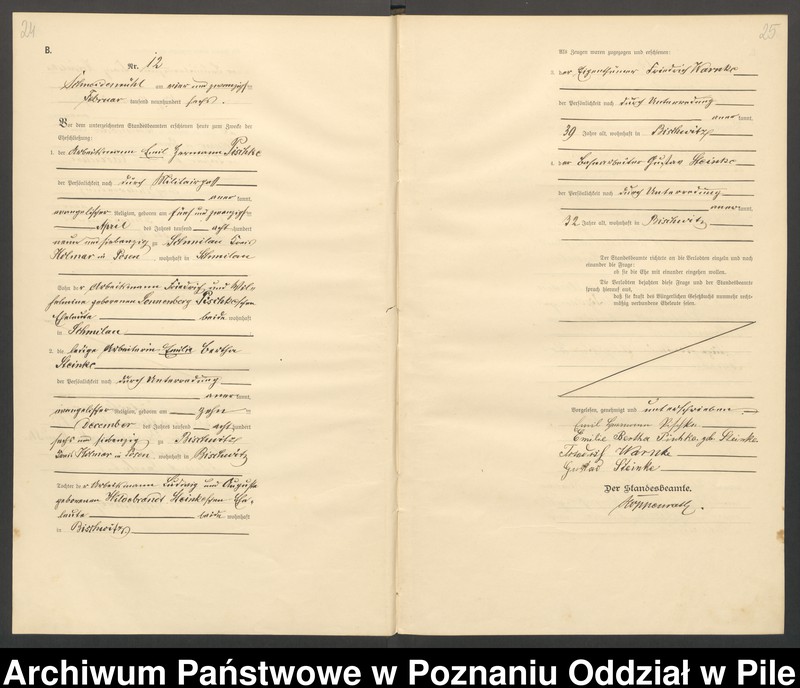 24
B.
Nr. 12
Schneidemühl am vier und zwanzigsten
Februar tausend neunhundert sechs.
Vor dem unterzeichneten Standesbeamten erschienen heute zum Zwecke der
Eheschließung:
1. der Arbeitsmann Emil Hermann Pischke
der Persönlichkeit nach durch Militairpaß
anerkannt,
evangelischer Religion, geboren am fünf und zwanzigsten
April des Jahres tausend acht hundert
neun und siebenzig zu Schmilau Kreis
Kolmar in Posen, wohnhaft in Schmilau
Sohn der Arbeitsmann Friedrich und Wil-
helmine geborenen Sonnenberg Pischke'schen
Eheleute beide wohnhaft
in Schmilau
2. die ledige Arbeiterin Emilie Bertha
Steinke
der Persönlichkeit nach durch Unterredung
kannt,
evangelischer Religion, geboren am zehn
December des Jahres tausend acht hundert
sechs und siebenzig zu Bischwitz
Kreis Kolmar in Posen, wohnhaft in Bischwitz
Tochter der Arbeitsmann Ludwig und Auguste
geborenen Hildebrandt Steinke'schen Ehe-
leute beide wohnhaft
in Bischwitz
25
Als Zeugen waren zugezogen und erschienen:
3. der Eigenthümer Friedrich Warnke
der Persönlichkeit nach durch Unterredung
anerkannt,
39 Jahre alt, wohnhaft in Bischwitz
4. der Bahnarbeiter Gustav Steinke
der Persönlichkeit nach durch Unterredung
anerkannt,
32 Jahre alt, wohnhaft in Bischwitz
Der Standesbeamte richtete an die Verlobten einzeln und nach
einander die Frage:
ob sie die Ehe mit einander eingehen wollen.
Die Verlobten bejahten diese Frage und der Standesbeamte
sprach hierauf aus,
daß sie kraft des Bürgerlichen Gesetzbuchs nunmehr recht-
mäßig verbundene Eheleute seien.
Vorgelesen, genehmigt und unterschrieben
Emil Hermann Pischke
Emilie Bertha Pischke geb Steinke
Friedrich Warnke
Gustav Steinke
Der Standesbeamte.
Archiwum Państwowe w Poznaniu Oddział w Pile